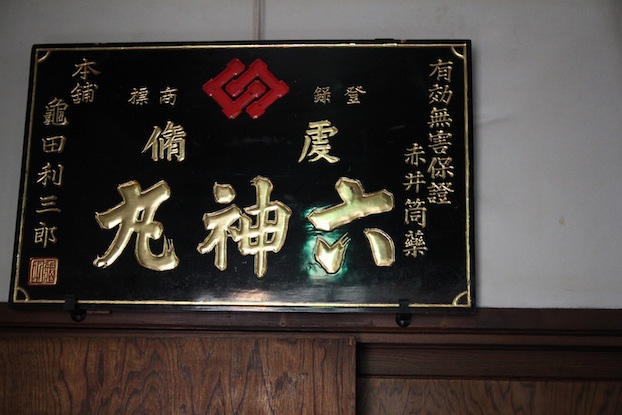 有効無害保證
赤井筒藥
登録商標
虔脩
六神丸
本舗
龜田利三郎